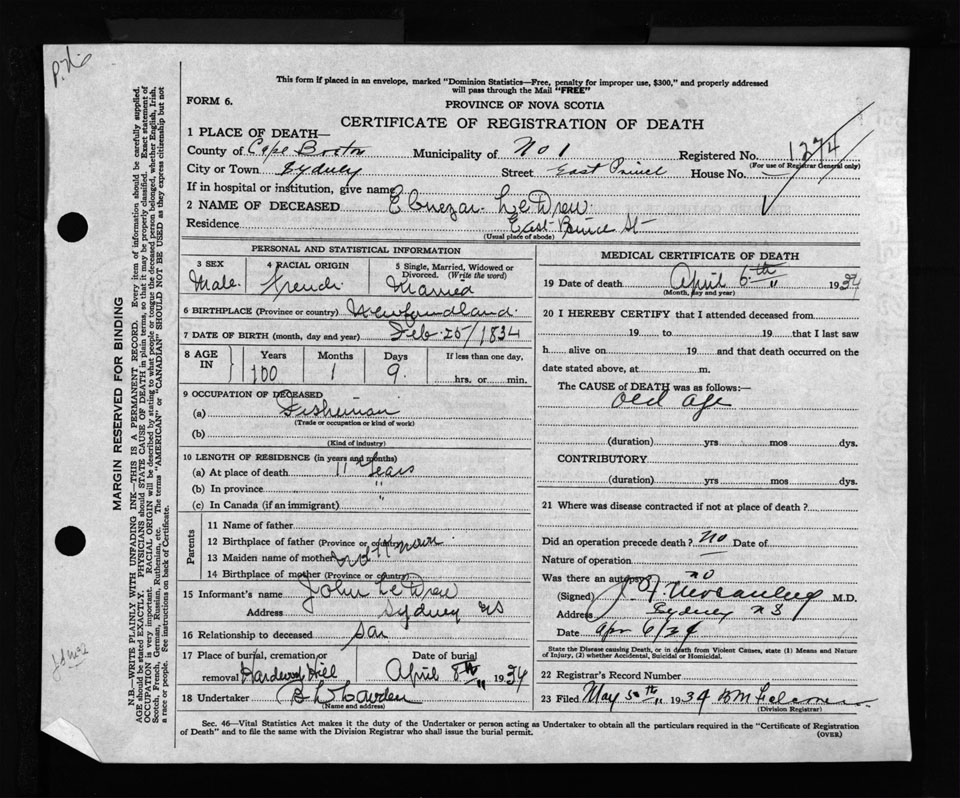 This form if placed in an envelope, marked "Dominion Statistics—Free, penalty for improper use, $300," and properly addressed
will pass through the Mail "FREE"
FORM 6.
PROVINCE OF NOVA SCOTIA
CERTIFICATE OF REGISTRATION OF DEATH
1 PLACE OF DEATH—
County of Cape Breton Municipality of No 1 Registered No. 1274
(For use of Registrar General only)
City or Town Sydney Street East House No.
If in hospital or institution, give name
2 NAME OF DECEASED Ebnezar LeDrew
Residence East St
(Usual place of abode)
PERSONAL AND STATISTICAL INFORMATION
3 SEX
Male
4 RACIAL ORIGIN
French
5 Single, Married, Widowed or
Divorced. (Write the word)
Married
6 BIRTHPLACE (Province or country) Newfoundland
7 DATE OF BIRTH (month, day and year) Feb 25/1834
8 AGE IN
Years Months Days If less than one day,
100 1 9 hrs. or min.
9 OCCUPATION OF DECEASED
(a) Fisherman
(Trade or occupation or kind of work)
(b)
(Kind of industry)
10 LENGTH OF RESIDENCE (in years and months)
(a) At place of death 11 Years
(b) In province "
(c) In Canada (if an immigrant) "
Parents
11 Name of father
12 Birthplace of father (Province or country)
13 Maiden name of mother Not Known
14 Birthplace of mother (Province or country)
15 Informant's name John LeDrew
Address Sydney NS
16 Relationship to deceased Son
17 Place of burial, cremation or
removal Hardwood Hill
Date of burial
April 8th 1934
18 Undertaker
(Name and address)
MEDICAL CERTIFICATE OF DEATH
19 Date of death April 6th 1934
(Month, day and year)
20 I HEREBY CERTIFY that I attended deceased from
19 to 19 that I last saw
h alive on 19 and that death occurred on the
date stated above, at m.
The CAUSE of DEATH was as follows:—
Old age
(duration) yrs mos dys.
CONTRIBUTORY
(duration) yrs mos dys.
21 Where was disease contracted if not at place of death?
Did an operation precede death? No Date of
Nature of operation
Was there an autopsy no
(Signed) M.D.
Address Sydney N S
Date Apr 6/34
State the Disease causing Death, or in death from Violent Causes, state (1) Means and Nature
of Injury, (2) whether Accidental, Suicidal or Homicidal.
22 Registrar's Record Number
23 Filed May 5th 1934
(Division Registrar)
Sec. 46—Vital Statistics Act makes it the duty of the Undertaker or person acting as Undertaker to obtain all the particulars required in the "Certificate of Registration
of Death" and to file the same with the Division Registrar who shall issue the burial permit.
(OVER)
MARGIN RESERVED FOR BINDING
N.B.—WRITE PLAINLY WITH UNFADING INK—THIS IS A PERMANENT RECORD. Every item of information should be carefully supplied.
AGE should be stated EXACTLY. PHYSICIANS should STATE CAUSE OF DEATH in plain terms, so that it may be properly classified. Exact statement of
OCCUPATION is very important. RACIAL ORIGIN will be described by stating to what people or tongue the deceased person belonged, whether English, Irish,
Scotch, French, German, Russian, Ruthenian, etc. The terms "AMERICAN" or "CANADIAN" SHOULD NOT BE USED as they express citizenship but not
a race or people. See instructions on back of Certificate.